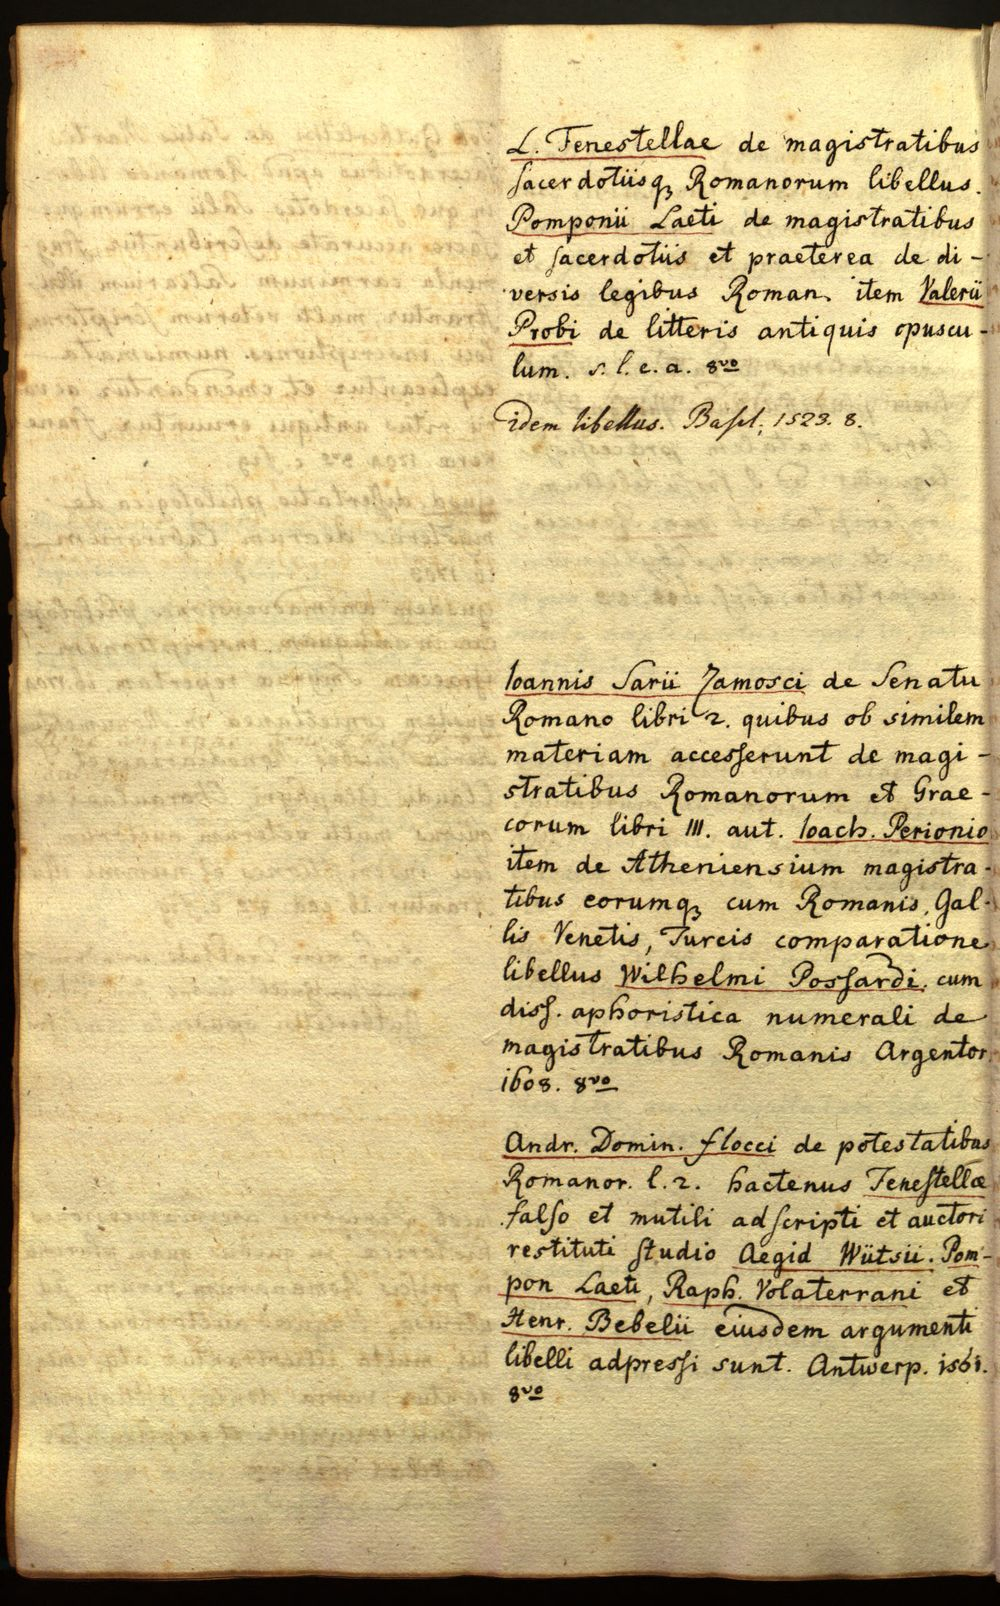 L. Fenestellae de magistratibus
sacerdotiisq; Romanorum libellus.
Pomponii Laeti de magistratibus
et sacerdotiis et praeterea de di-
versis legibus Roman. item Valerii
Probi de litteris antiquis opuscu-
lum. s. l. e. a. 8vo
idem libellus. Basil. 1523. 8.
Ioannis Sarii Zamosci de Senatu
Romano libri 2. quibus ob similem
materiam accesserunt de magi-
stratibus Romanorum et Grae-
corum libri III. aut. Ioach. Perionio
item de Atheniensium magistra-
tibus eorumq; cum Romanis, Gal-
lis Venetis, Turcis comparatione
libellus Wilhelmi Possardi. cum
diss. aphoristica numerali de
magistratibus Romanis Argentor.
1608. 8vo
Andr. Domin. flocci de potestatibus
Romanor. l. 2. hactenus Fenestellae
falso et mutili adscripti et auctori
restituti studio Aegid Wütsii. Pom-
pon Laeti, Raph. Volaterrani et
Henr. Bebelii eiusdem argumenti
libelli adpressi sunt. Antwerp. 1561.
8vo